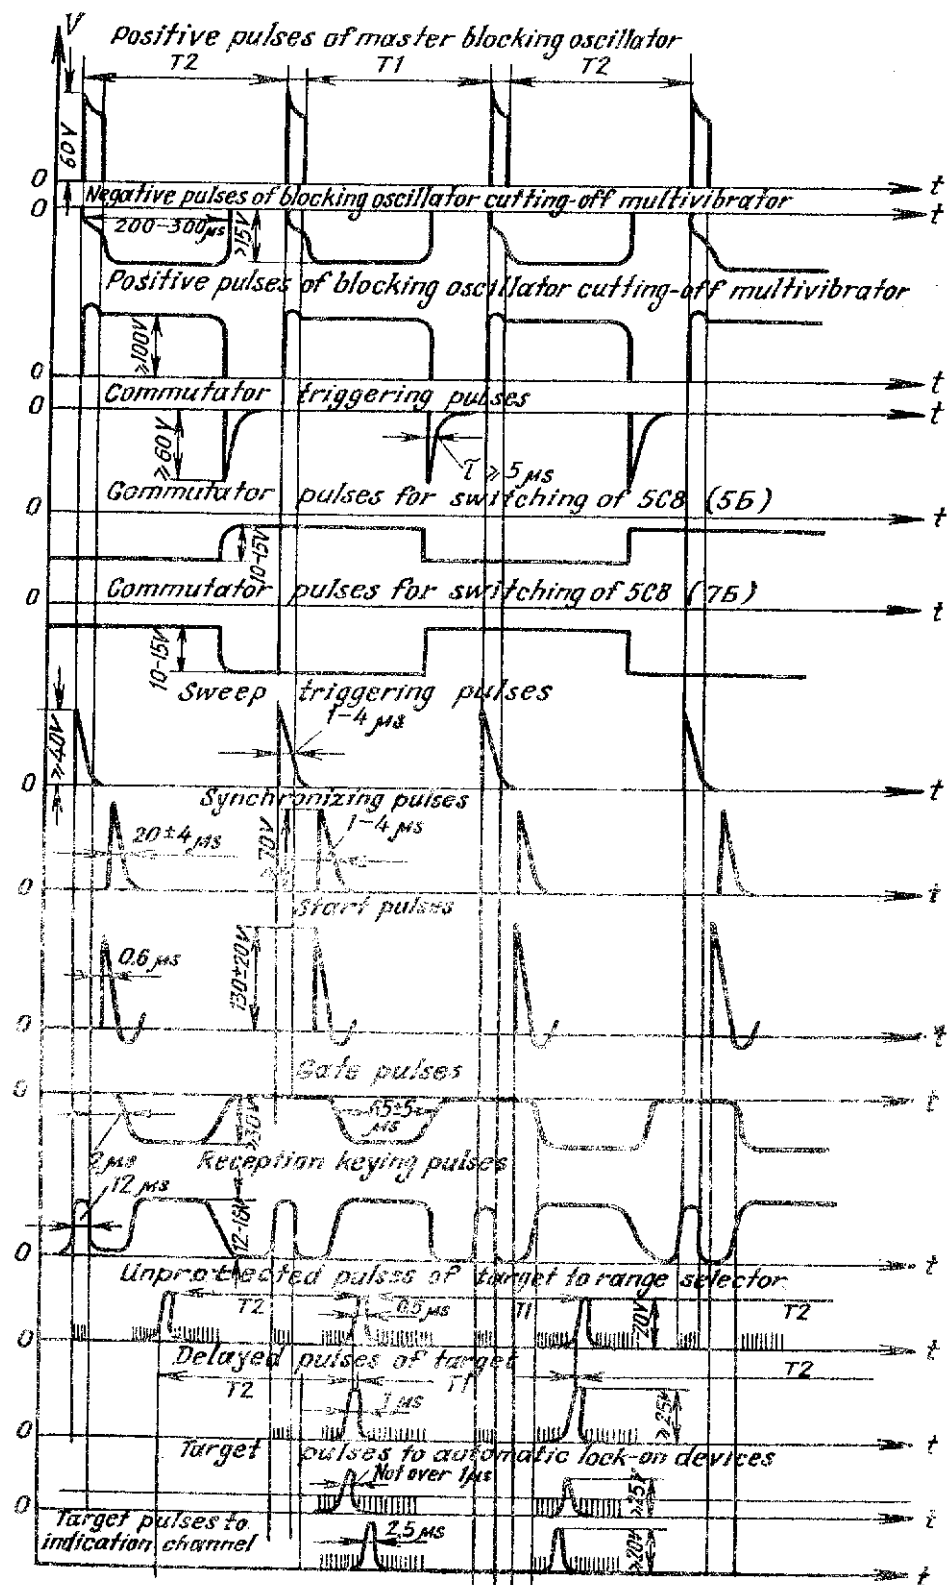 V
Positive pulses of master blocking oscillator
T2 T1 T2
60V
0 t
Negative pulses of blocking oscillator cutting-off multivibrator
0 t
200-300 µs
≥15V
Positive pulses of blocking oscillator cutting-off multivibrator
≥100V
0 t
Commutator triggering pulses
0 t
≥60V
τ ≥ 5 µs
Commutator pulses for switching of 5C8 (5Б)
0 t
10-15V
Commutator pulses for switching of 5C8 (7Б)
0 t
10-15V
Sweep triggering pulses
1-4 µs
≥40V
0 t
Synchronizing pulses
20±4 µs
≥70V
1-4 µs
0 t
Start pulses
0.6 µs
130±20V
0 t
Gate pulses
0 t
≥30V
65±5 µs
2 µs
Reception keying pulses
12 µs
12-18V
0 t
Unprotected pulses of target to range selector
T2 0.5 µs T1 T2
≥20V
0 t
Delayed pulses of target
T2 T1 T2
1 µs
≥25V
0 t
Target pulses to automatic lock-on devices
Not over 1µs
≥25V
0 t
Target pulses to
indication channel
2,5 µs
≥20V
t